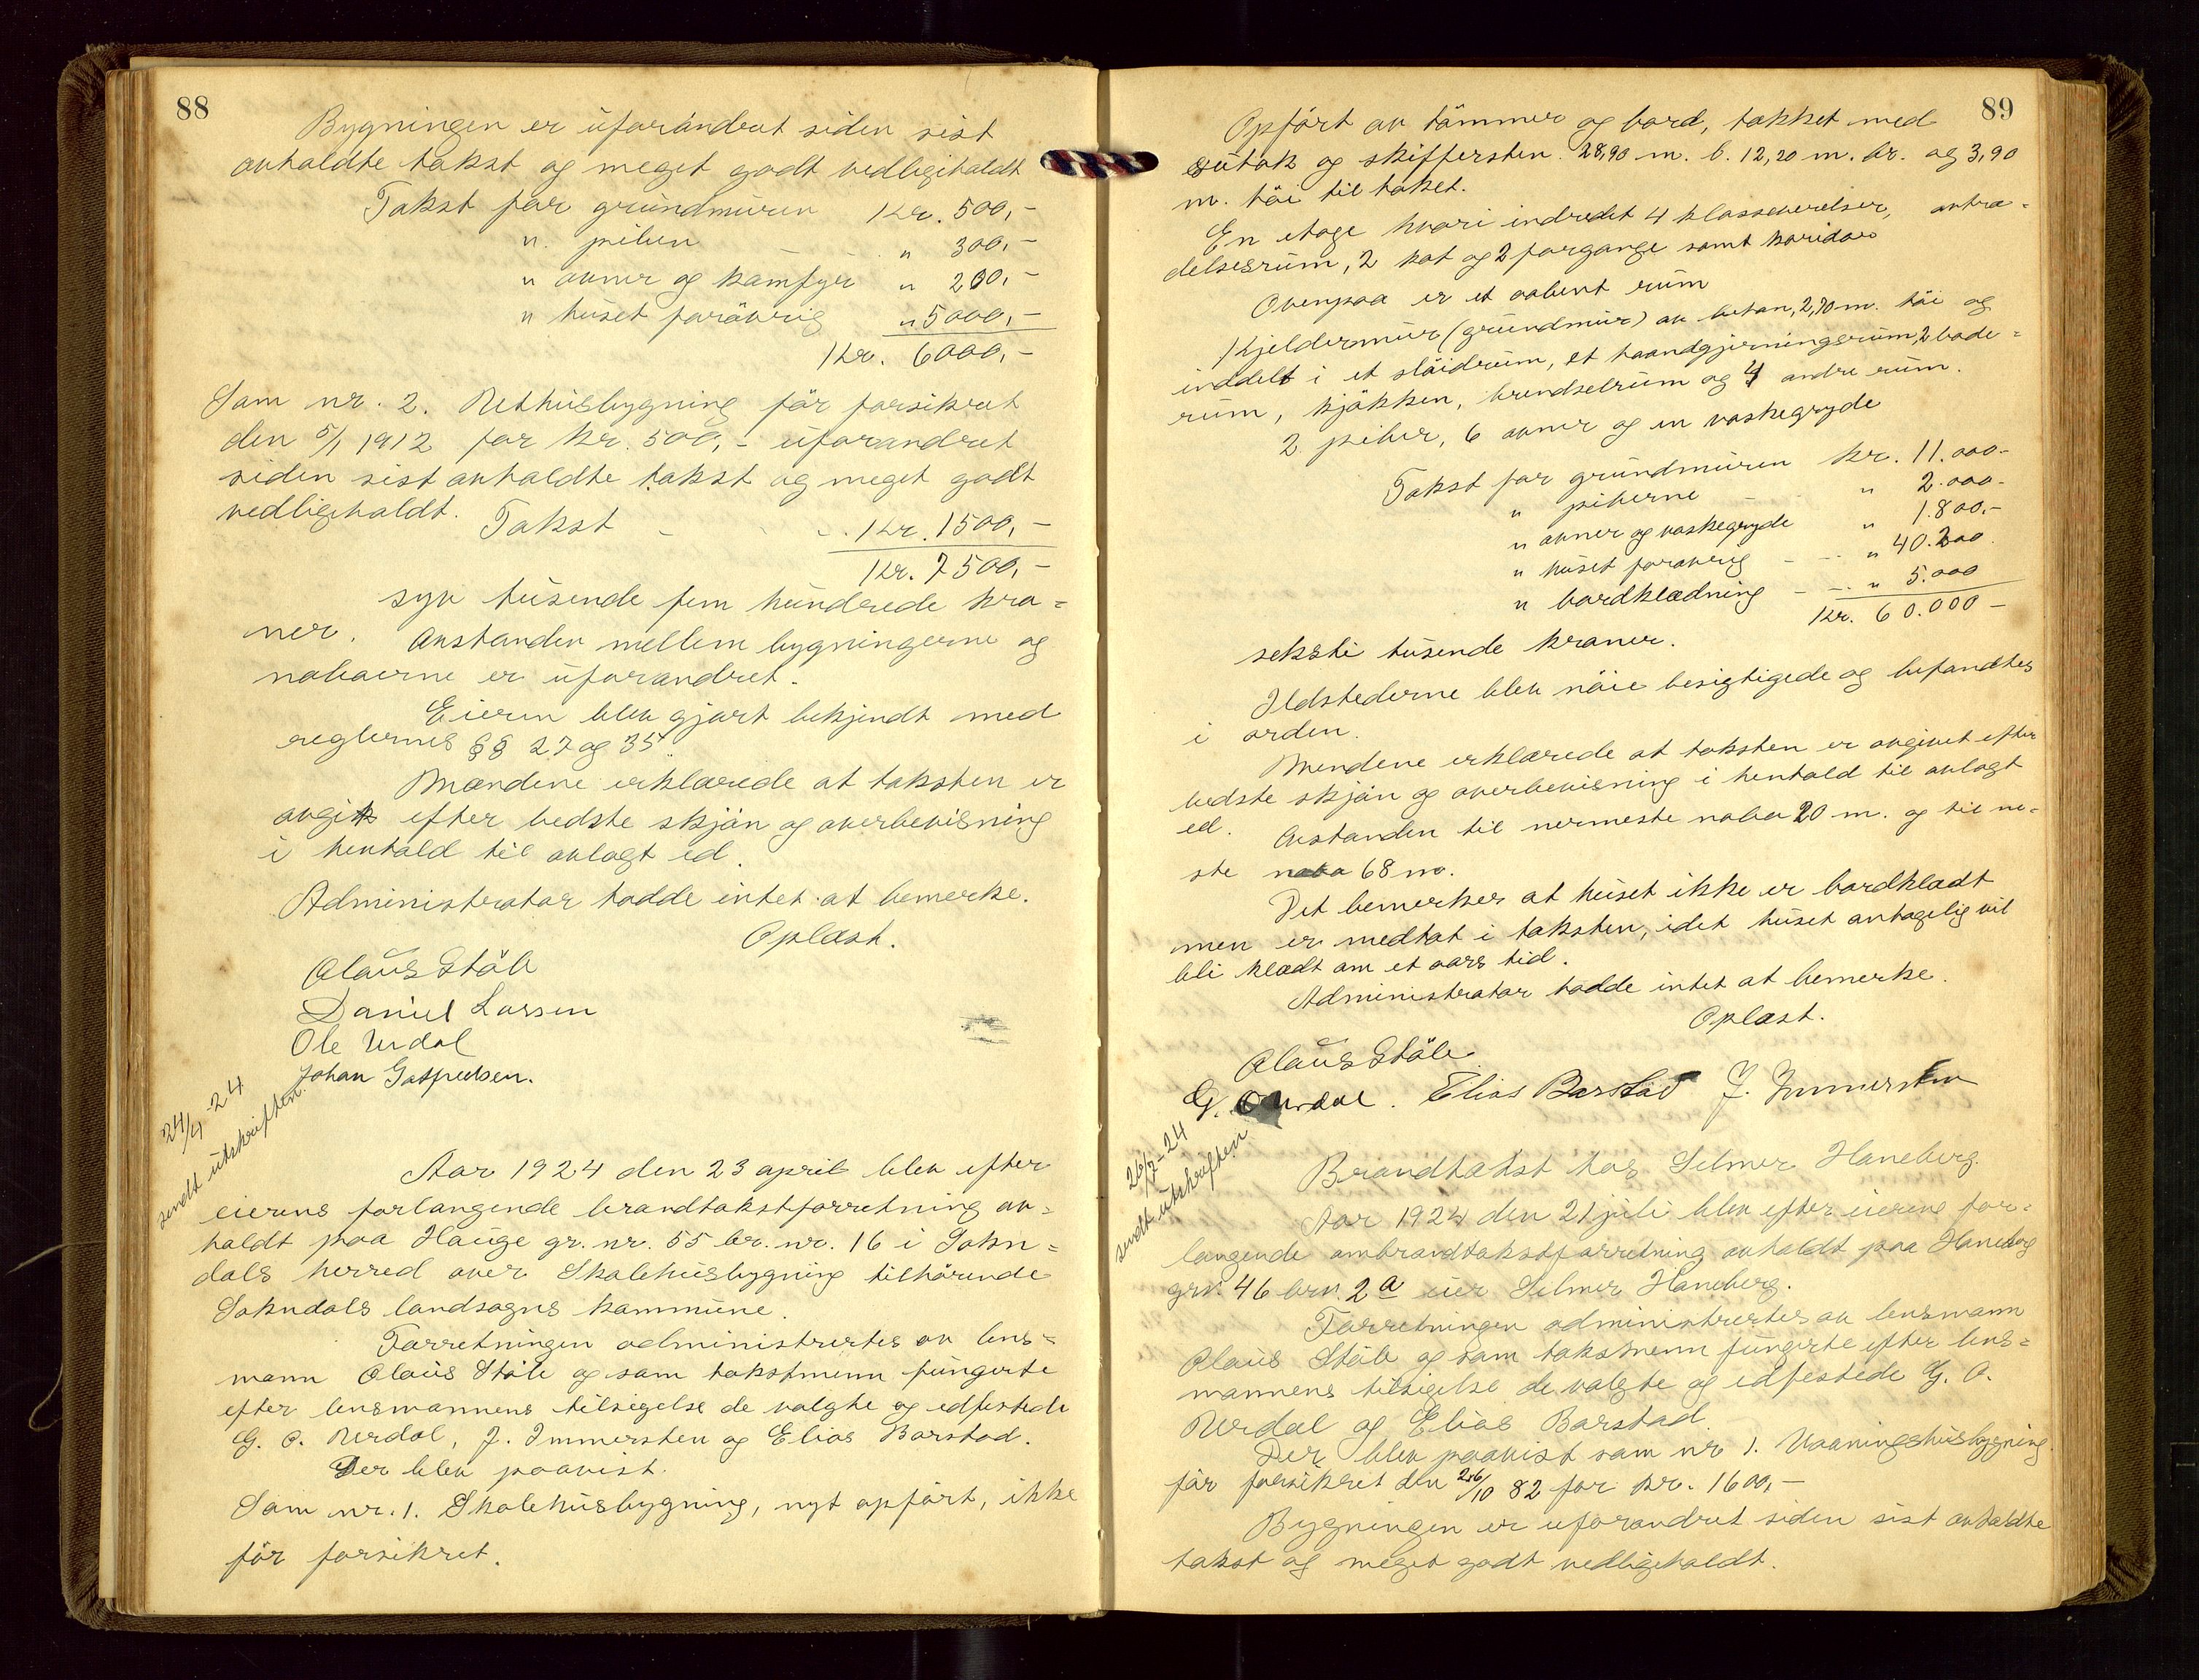 88
Bygningen er uforandret siden sist
avholdte takst og meget godt vedligeholdt
Takst for grundmuren Kr. 500,-
" piben - " 300,-
" ovner og kamfyr " 200,-
" huset forøvrig " 5000,-
Kr. 6000,-
Som nr. 2. Uthusbygning før forsikret
den 5/1 1912 for kr. 500,- uforandret
siden sist avholdte takst og meget godt
vedligeholdt. Takst - Kr. 1500,-
Kr. 7500,-
syv tusende fem hundrede kro=
ner. Avstanden mellem bygningerne og
naboerne er uforandret.
Eieren blev gjort bekjendt med
reglernes §§ 27 og 35.
Mændene erklærede at taksten er
avgit efter bedste skjøn og overbevisning
i henhold til avlagt ed.
Administrator hadde intet at bemerke.
Oplæst.
Olaus Støle
Daniel Larsen
Ole Urdal
Johan Gotfredsen.
24/4-24
sendt utskriften.
Aar 1924 den 23 april blev efter
eierens forlangende brandtakstforretning av=
holdt paa Hauge gr. nr. 55 br. nr. 16 i Sokn=
dals herred over Skolehusbygning tilhørende
Sokndals landsogns kommune.
Forretningen administrertes av lens=
mann Olaus Støle og som takstmenn fungerte
efter lensmannens tilsigelse de valgte og edfestede
G. O. Urdal, J. Immersten og Elias Barstad.
Der blev paavist.
Som nr. 1. Skolehusbygning, nyt opført, ikke
før forsikret.
89
Opført av tømmer og bord, takket med
sutak og skiffersten. 28,90 m. l. 12,20 m. br. og 3,90
m. høi til taket.
En etage hvori indredet 4 klasseværelser, antræ=
delsesrum, 2 kot og 2 forgange samt koridor
Ovenpaa er et aabent rum
Kjeldermur (grundmur) av betan, 2,70 m. høi og
inddelt i et sløidrum, et haandgjerningsrum, 2 bade=
rum, kjøkken, brendselrum og 4 andre rum.
2 piber, 6 ovner og en vaskegryde
Takst for grundmuren kr. 11.000-
" piberne - " 2.000-
" ovner og vaskegryde " 1.800,-
" huset forøvrig - " 40.200.
" bordklædning - " 5.000
Kr. 60.000-
seksti tusende kroner.
Ildstederne blev nøie besigtigede og befandtes
i orden.
Mendene erklærede at taksten er avgivet efter
bedste skjøn og overbevisning i henhold til avlagt
ed. Avstanden til nermeste nabo 20 m. og til ne=
ste nabo 68 m.
Det bemerkes at huset ikke er bordklædt
men er medtat i taksten, idet huset antagelig vil
bli klædt om et aars tid.
Administrator hadde intet at bemerke.
Oplæst.
Olaus Støle
G. O Urdal. Elias Barstad J. Immersten
26/7-24
sendt utskriften
Brandtakst hos Selmer Haneberg.
Aar 1924 den 21 juli blev efter eierens for=
langende ombrandtakstforretning avholdt paa Haneberg
grn. 46 brn. 2 a eier Selmer Haneberg.
Forretningen administrertes av lensmann
Olaus Støle og som takstmenn fungerte efter lens=
mannens tilsigelse de valgte og edfestede G. O.
Urdal og Elias Barstad.
Der blev paavist som nr 1. Vaaningshusbygning
før forsikret den 26/10 82 for kr. 1600,-
Bygningen er uforandret siden sist avholdte
takst og meget godt vedligeholdt.